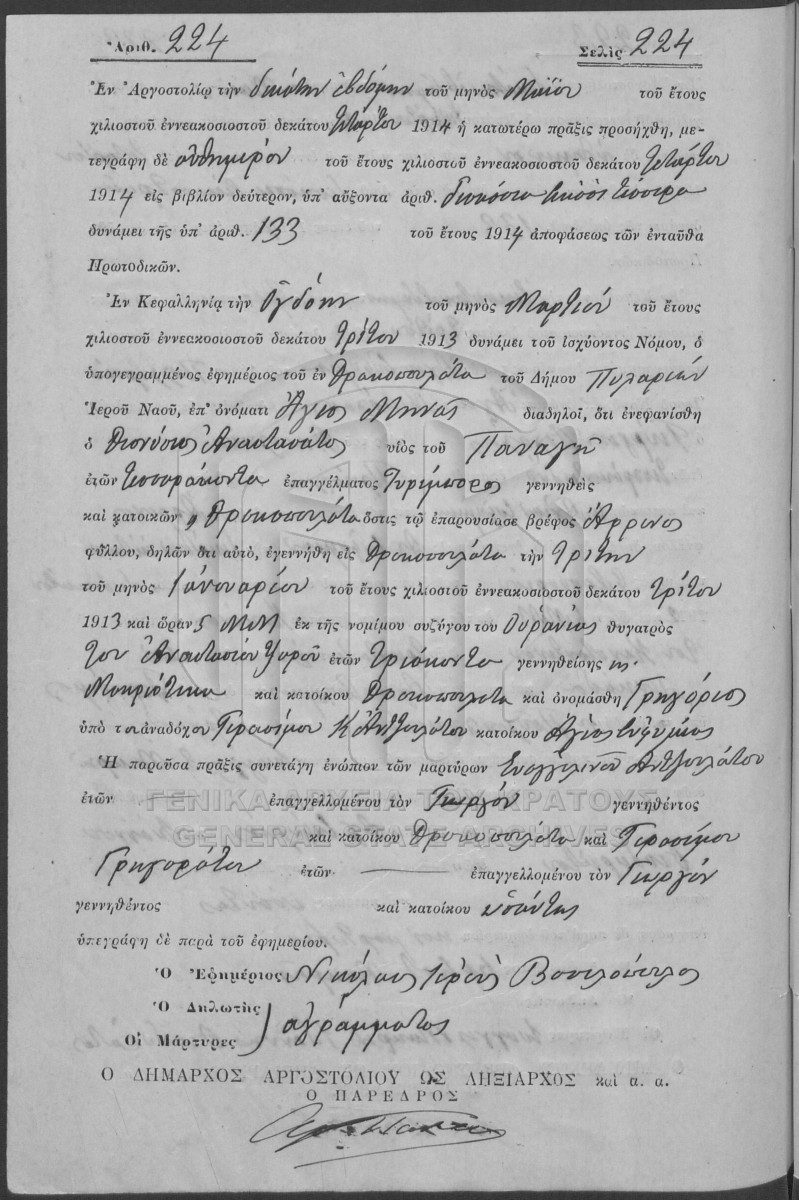 Ἀριθ. 224 Σελὶς 224
Ἐν Ἀργοστολίῳ τὴν δεκάτην ἑβδόμην τοῦ μηνὸς Μαΐου τοῦ ἔτους
χιλιοστοῦ ἐννεακοσιοστοῦ δεκάτου τετάρτου 1914 ἡ κατωτέρω πρᾶξις προσήχθη, με-
τεγράφη δὲ αὐθημερὸν τοῦ ἔτους χιλιοστοῦ ἐννεακοσιοστοῦ δεκάτου τετάρτου
1914 εἰς βιβλίον δεύτερον, ὑπ' αὔξοντα ἀριθ. διακόσια εἴκοσι τέσσερα
δυνάμει τῆς ὑπ' ἀριθ. 133 τοῦ ἔτους 1914 ἀποφάσεως τῶν ἐνταῦθα
Πρωτοδικῶν.
Ἐν Κεφαλληνίᾳ τὴν Ὀγδόην τοῦ μηνὸς Μαρτίου τοῦ ἔτους
χιλιοστοῦ ἐννεακοσιοστοῦ δεκάτου τρίτου 1913 δυνάμει τοῦ ἰσχύοντος Νόμου, ὁ
ὑπογεγραμμένος ἐφημέριος τοῦ ἐν Δρακοπουλάτα τοῦ Δήμου Πυλαρέων
Ἱεροῦ Ναοῦ, ἐπ' ὀνόματι Ἅγιος Μηνᾶς διαδηλοῖ, ὅτι ἐνεφανίσθη
ὁ Διονύσιος Ἀναστασάτος υἱὸς τοῦ Παναγῆ
ἐτῶν τεσσαράκοντα ἐπαγγέλματος Τυρέμπορος γεννηθεὶς
καὶ κατοικῶν " Δρακοπουλάτα ὅστις τῷ ἐπαρουσίασε βρέφος ἄρρενος
φύλλου, δηλῶν ὅτι αὐτό, ἐγεννήθη εἰς Δρακοπουλάτα τὴν Τρίτην
τοῦ μηνὸς Ἰανουαρίου τοῦ ἔτους χιλιοστοῦ ἐννεακοσιοστοῦ δεκάτου τρίτου
1913 καὶ ὥραν 5 Μ.Μ ἐκ τῆς νομίμου συζύγου του Οὐρανίας θυγατρὸς
του Ἀναστασίου Ψαροῦ ἐτῶν τριάκοντα γεννηθείσης εἰς
Μακριώτικα καὶ κατοίκου Δρακοπουλάτα καὶ ὀνομάσθη Γρηγόριος
ὑπὸ τοῦ ἀναδόχου Γερασίμου Κ Ἀντζουλάτου κατοίκου Ἁγίας Εὐφημίας
Ἡ παροῦσα πρᾶξις συνετάγη ἐνώπιον τῶν μαρτύρων Εὐαγγελινοῦ Ἀντζουλάτου
ἐτῶν ἐπαγγελλομένου τὸν Γεωργὸν γεννηθέντος
καὶ κατοίκου Δρακοπουλάτα καὶ Γερασίμου
Γρηγοράτου ἐτῶν ἐπαγγελλομένου τὸν Γεωργὸν
γεννηθέντος καὶ κατοίκου ὡσαύτως
ὑπεγράφη δὲ παρὰ τοῦ ἐφημερίου.
Ὁ Ἐφημέριος Νικόλαος Ἱερεὺς Βασιλόπουλος
Ὁ Δηλωτὴς
Οἱ Μάρτυρες } ἀγράμματος
Ο ΔΗΜΑΡΧΟΣ ΑΡΓΟΣΤΟΛΙΟΥ ΩΣ ΛΗΞΙΑΡΧΟΣ καὶ α. α.
Ο ΠΑΡΕΔΡΟΣ
ΓΕΝΙΚΑ ΑΡΧΕΙΑ ΤΟΥ ΚΡΑΤΟΥΣ
GENERAL STATE ARCHIVES